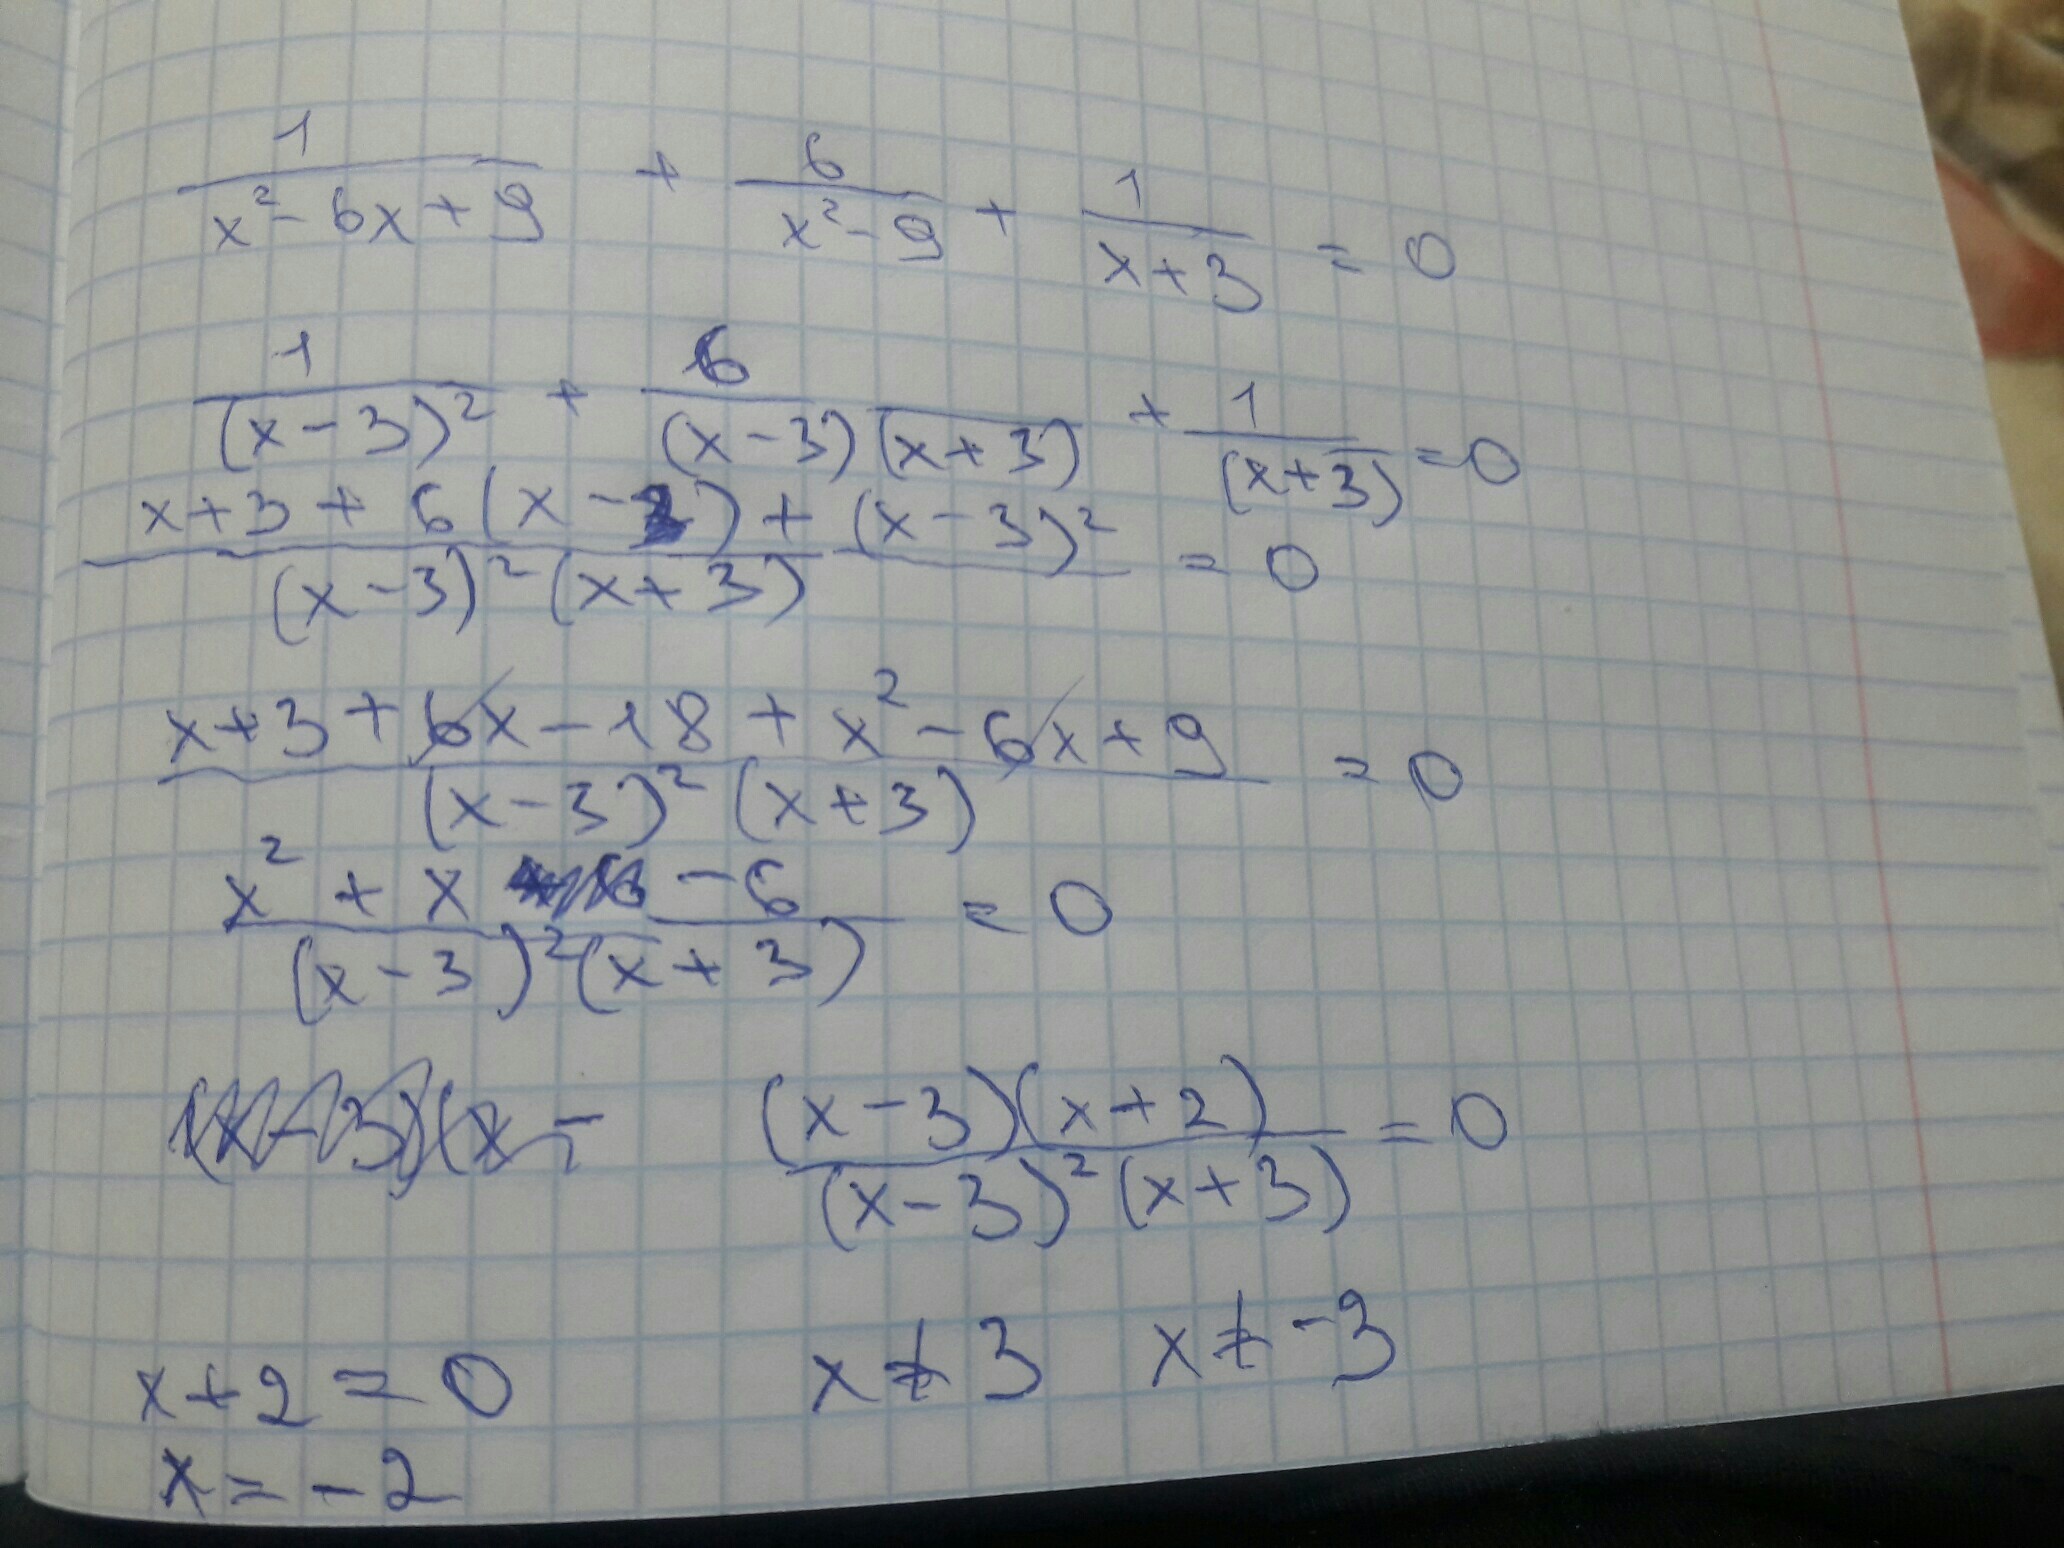 1/(x² - 6x + 9) + 6/(x² - 9) + 1/(x + 3) = 0
1/(x - 3)² + 6/((x - 3)(x + 3)) + 1/(x + 3) = 0
(x + 3 + 6(x - 3) + (x - 3)²)/((x - 3)²(x + 3)) = 0
(x + 3 + 6x - 18 + x² - 6x + 9)/((x - 3)²(x + 3)) = 0
(x² + x - 6)/((x - 3)²(x + 3)) = 0
((x - 3)(x + 2))/((x - 3)²(x + 3)) = 0
x ≠ 3 x ≠ -3
x + 2 = 0
x = -2